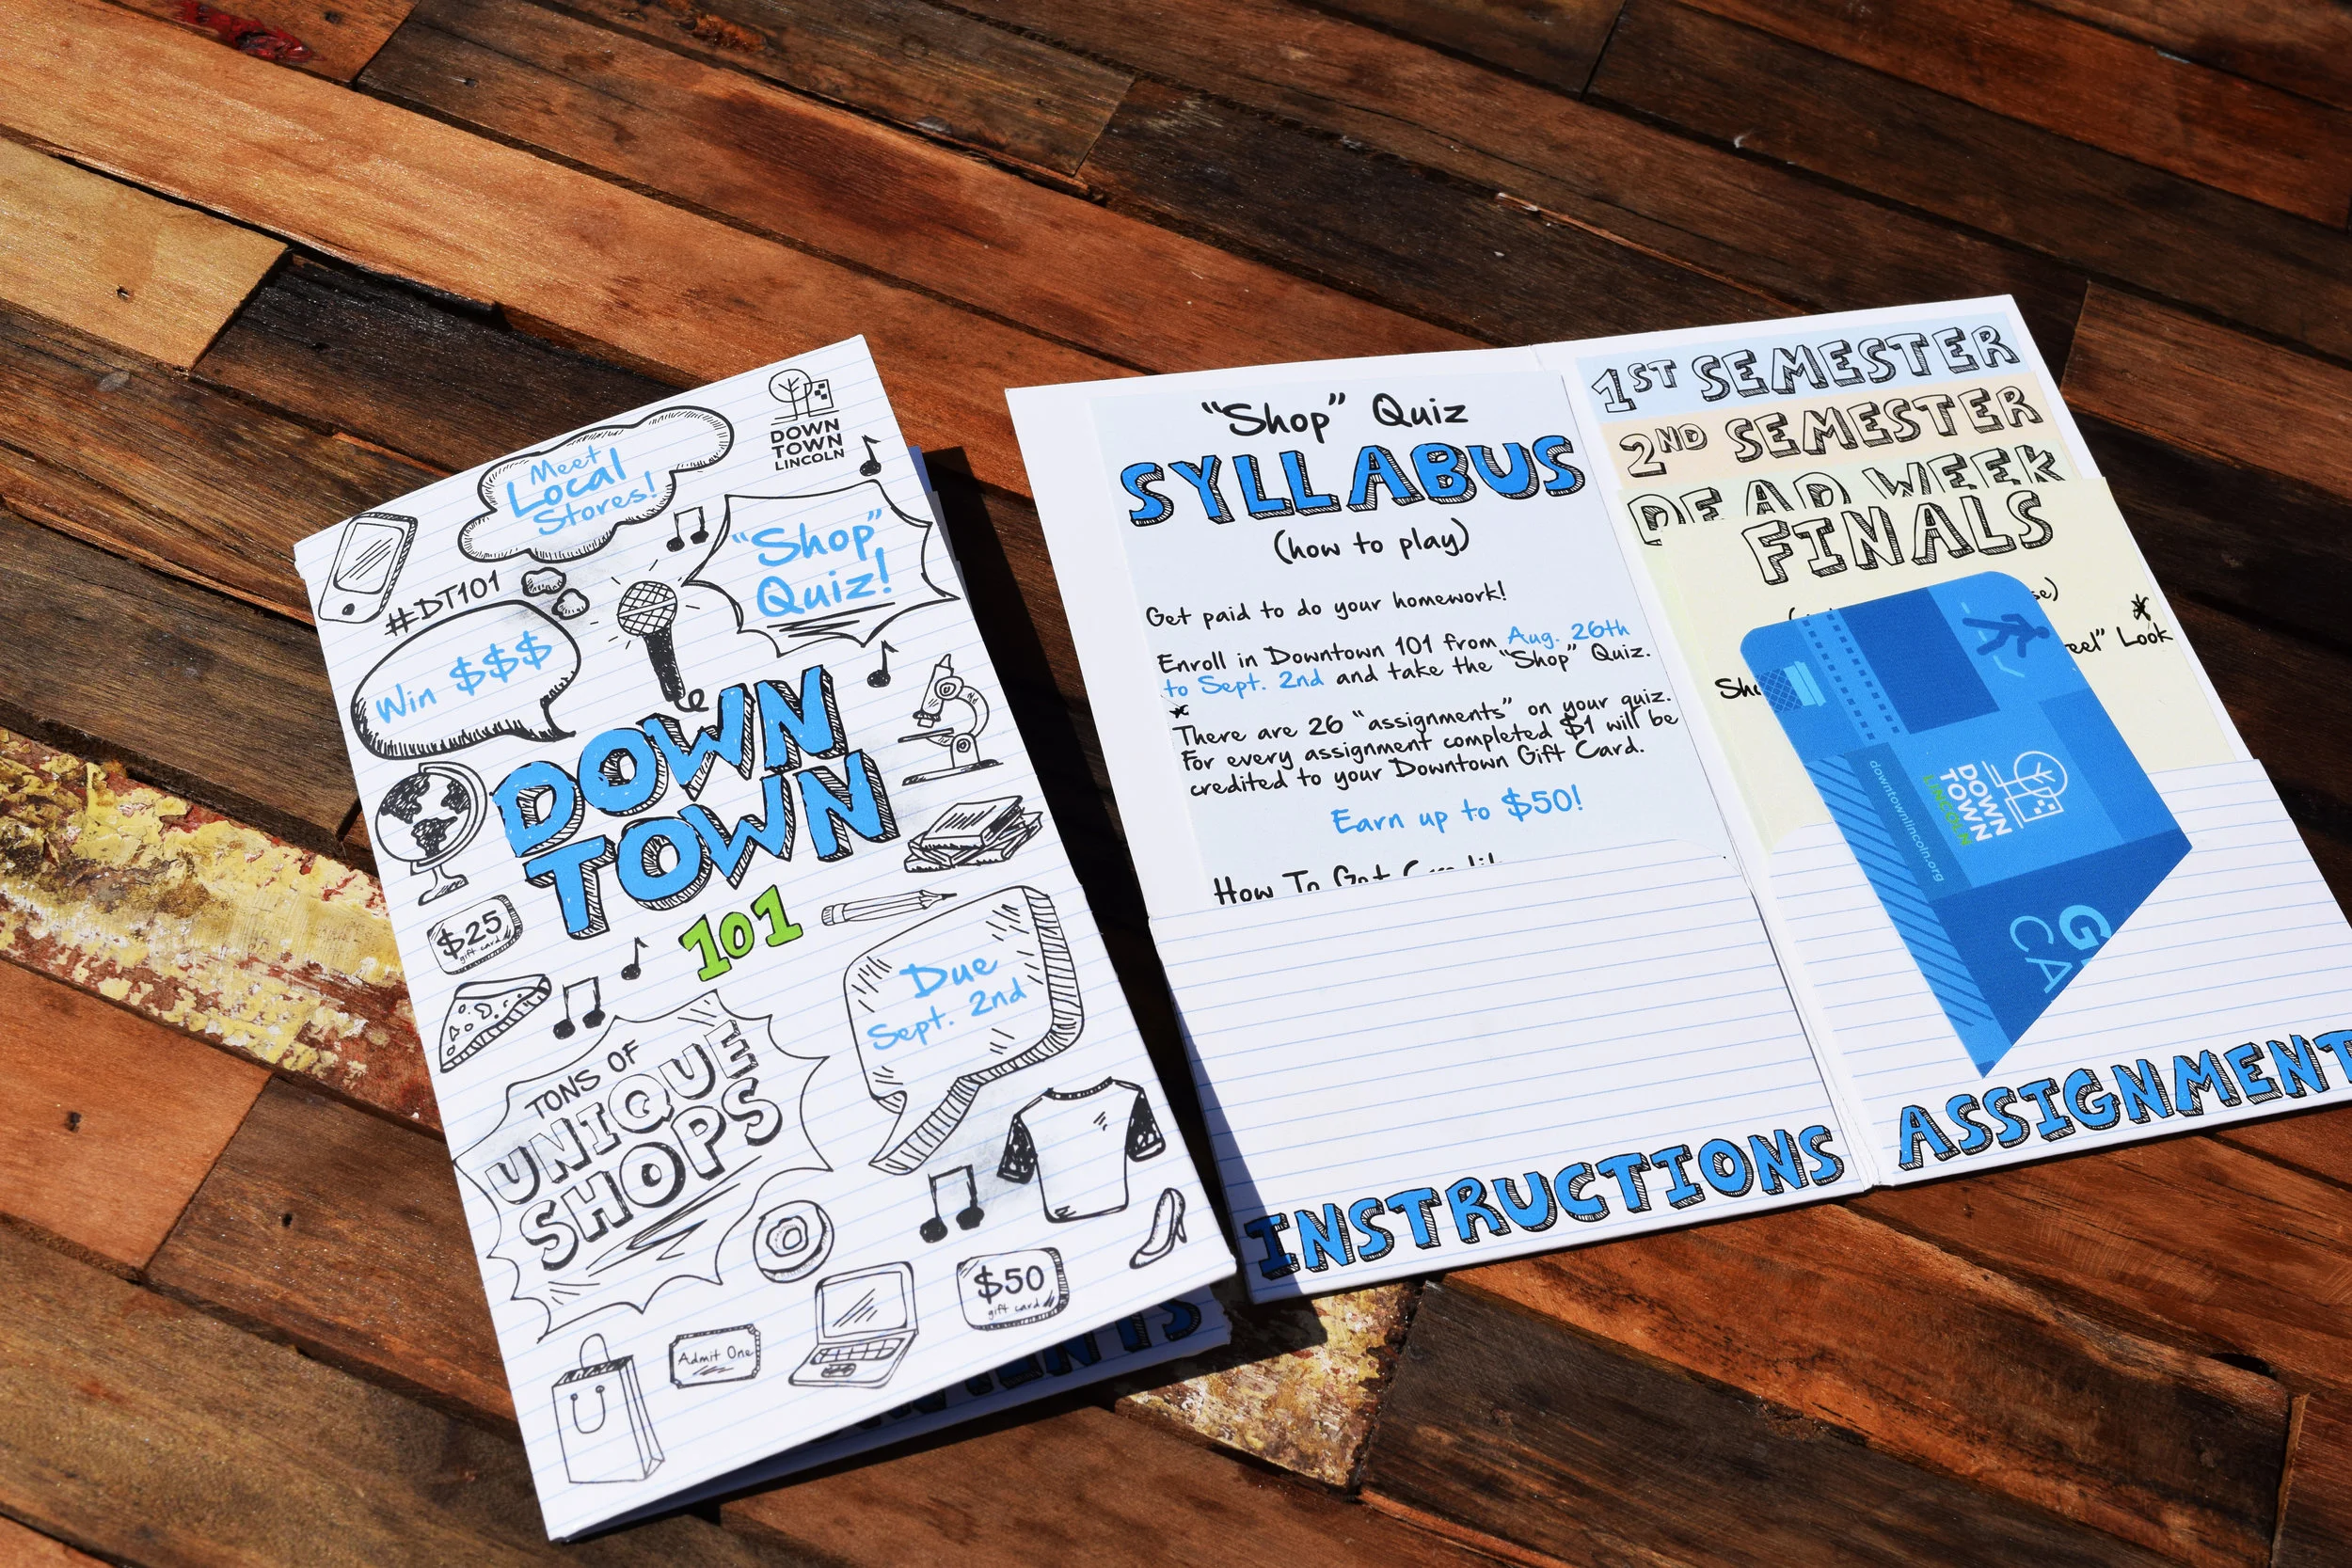 Meet
Local
Stores!
DOWN
TOWN
LINCOLN
#DT101
"Shop"
Quiz!
Win $$$
DOWN
TOWN
101
$25
gift card
Due
Sept. 2nd
TONS OF
UNIQUE
SHOPS
$50
gift card
Admit One
"Shop" Quiz
SYLLABUS
(how to play)
Get paid to do your homework!
Enroll in Downtown 101 from Aug. 26th
to Sept. 2nd and take the "Shop" Quiz.
There are 26 "assignments" on your quiz.
For every assignment completed $1 will be
credited to your Downtown Gift Card.
Earn up to $50!
How To Get Credit
INSTRUCTIONS
1ST SEMESTER
2ND SEMESTER
DEAD WEEK
FINALS
Look
DOWN
TOWN
LINCOLN
downtownlincoln.org
ASSIGNMENT